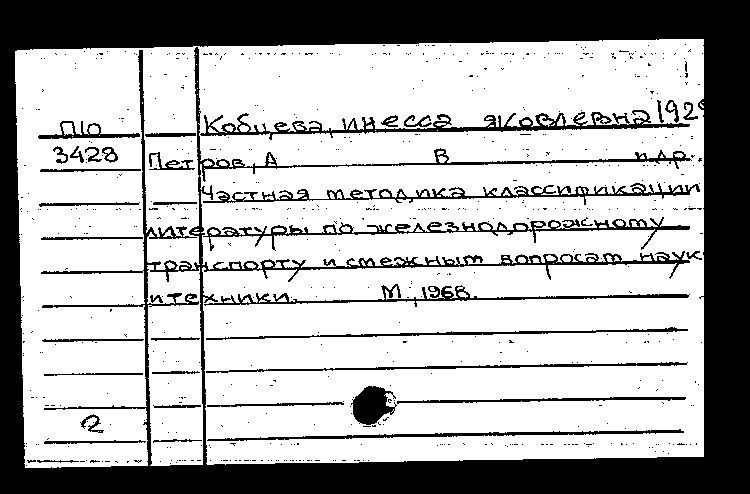 П10 Кобцева, инесса яковлевна 192
3428 Петров, А В и др.
Частная методика классификации
литературы по железнодорожному
транспорту и смежным вопросам наук
и техники. М, 1968.
2